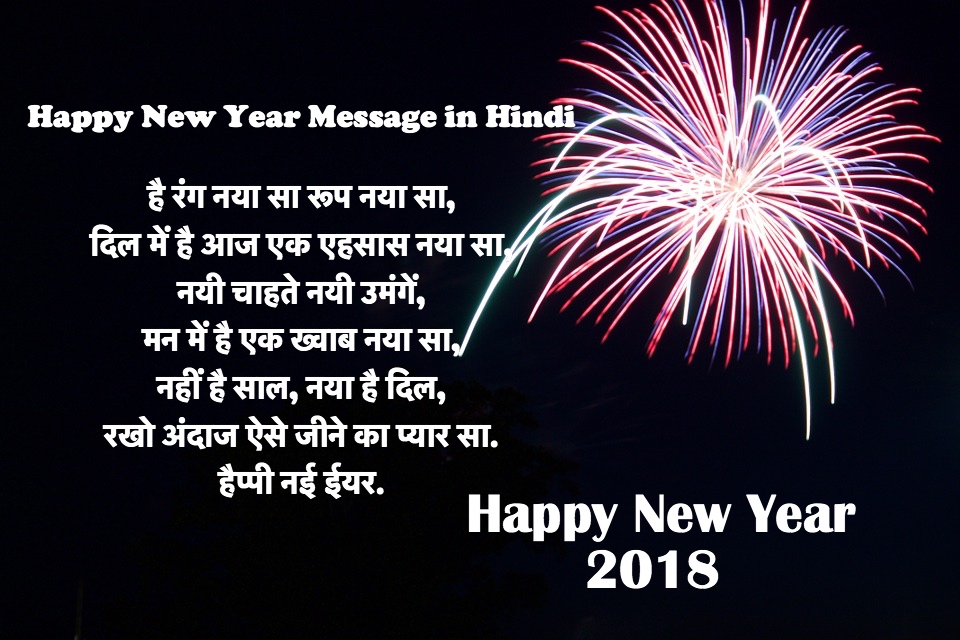 Happy New Year Message in Hindi
है रंग नया सा रूप नया सा,
दिल में है आज एक एहसास नया सा.
नयी चाहते नयी उमंगें,
मन में है एक ख्वाब नया सा,
नहीं है साल, नया है दिल,
रखो अंदाज ऐसे जीने का प्यार सा.
हैप्पी नई ईयर.
Happy New Year
2018